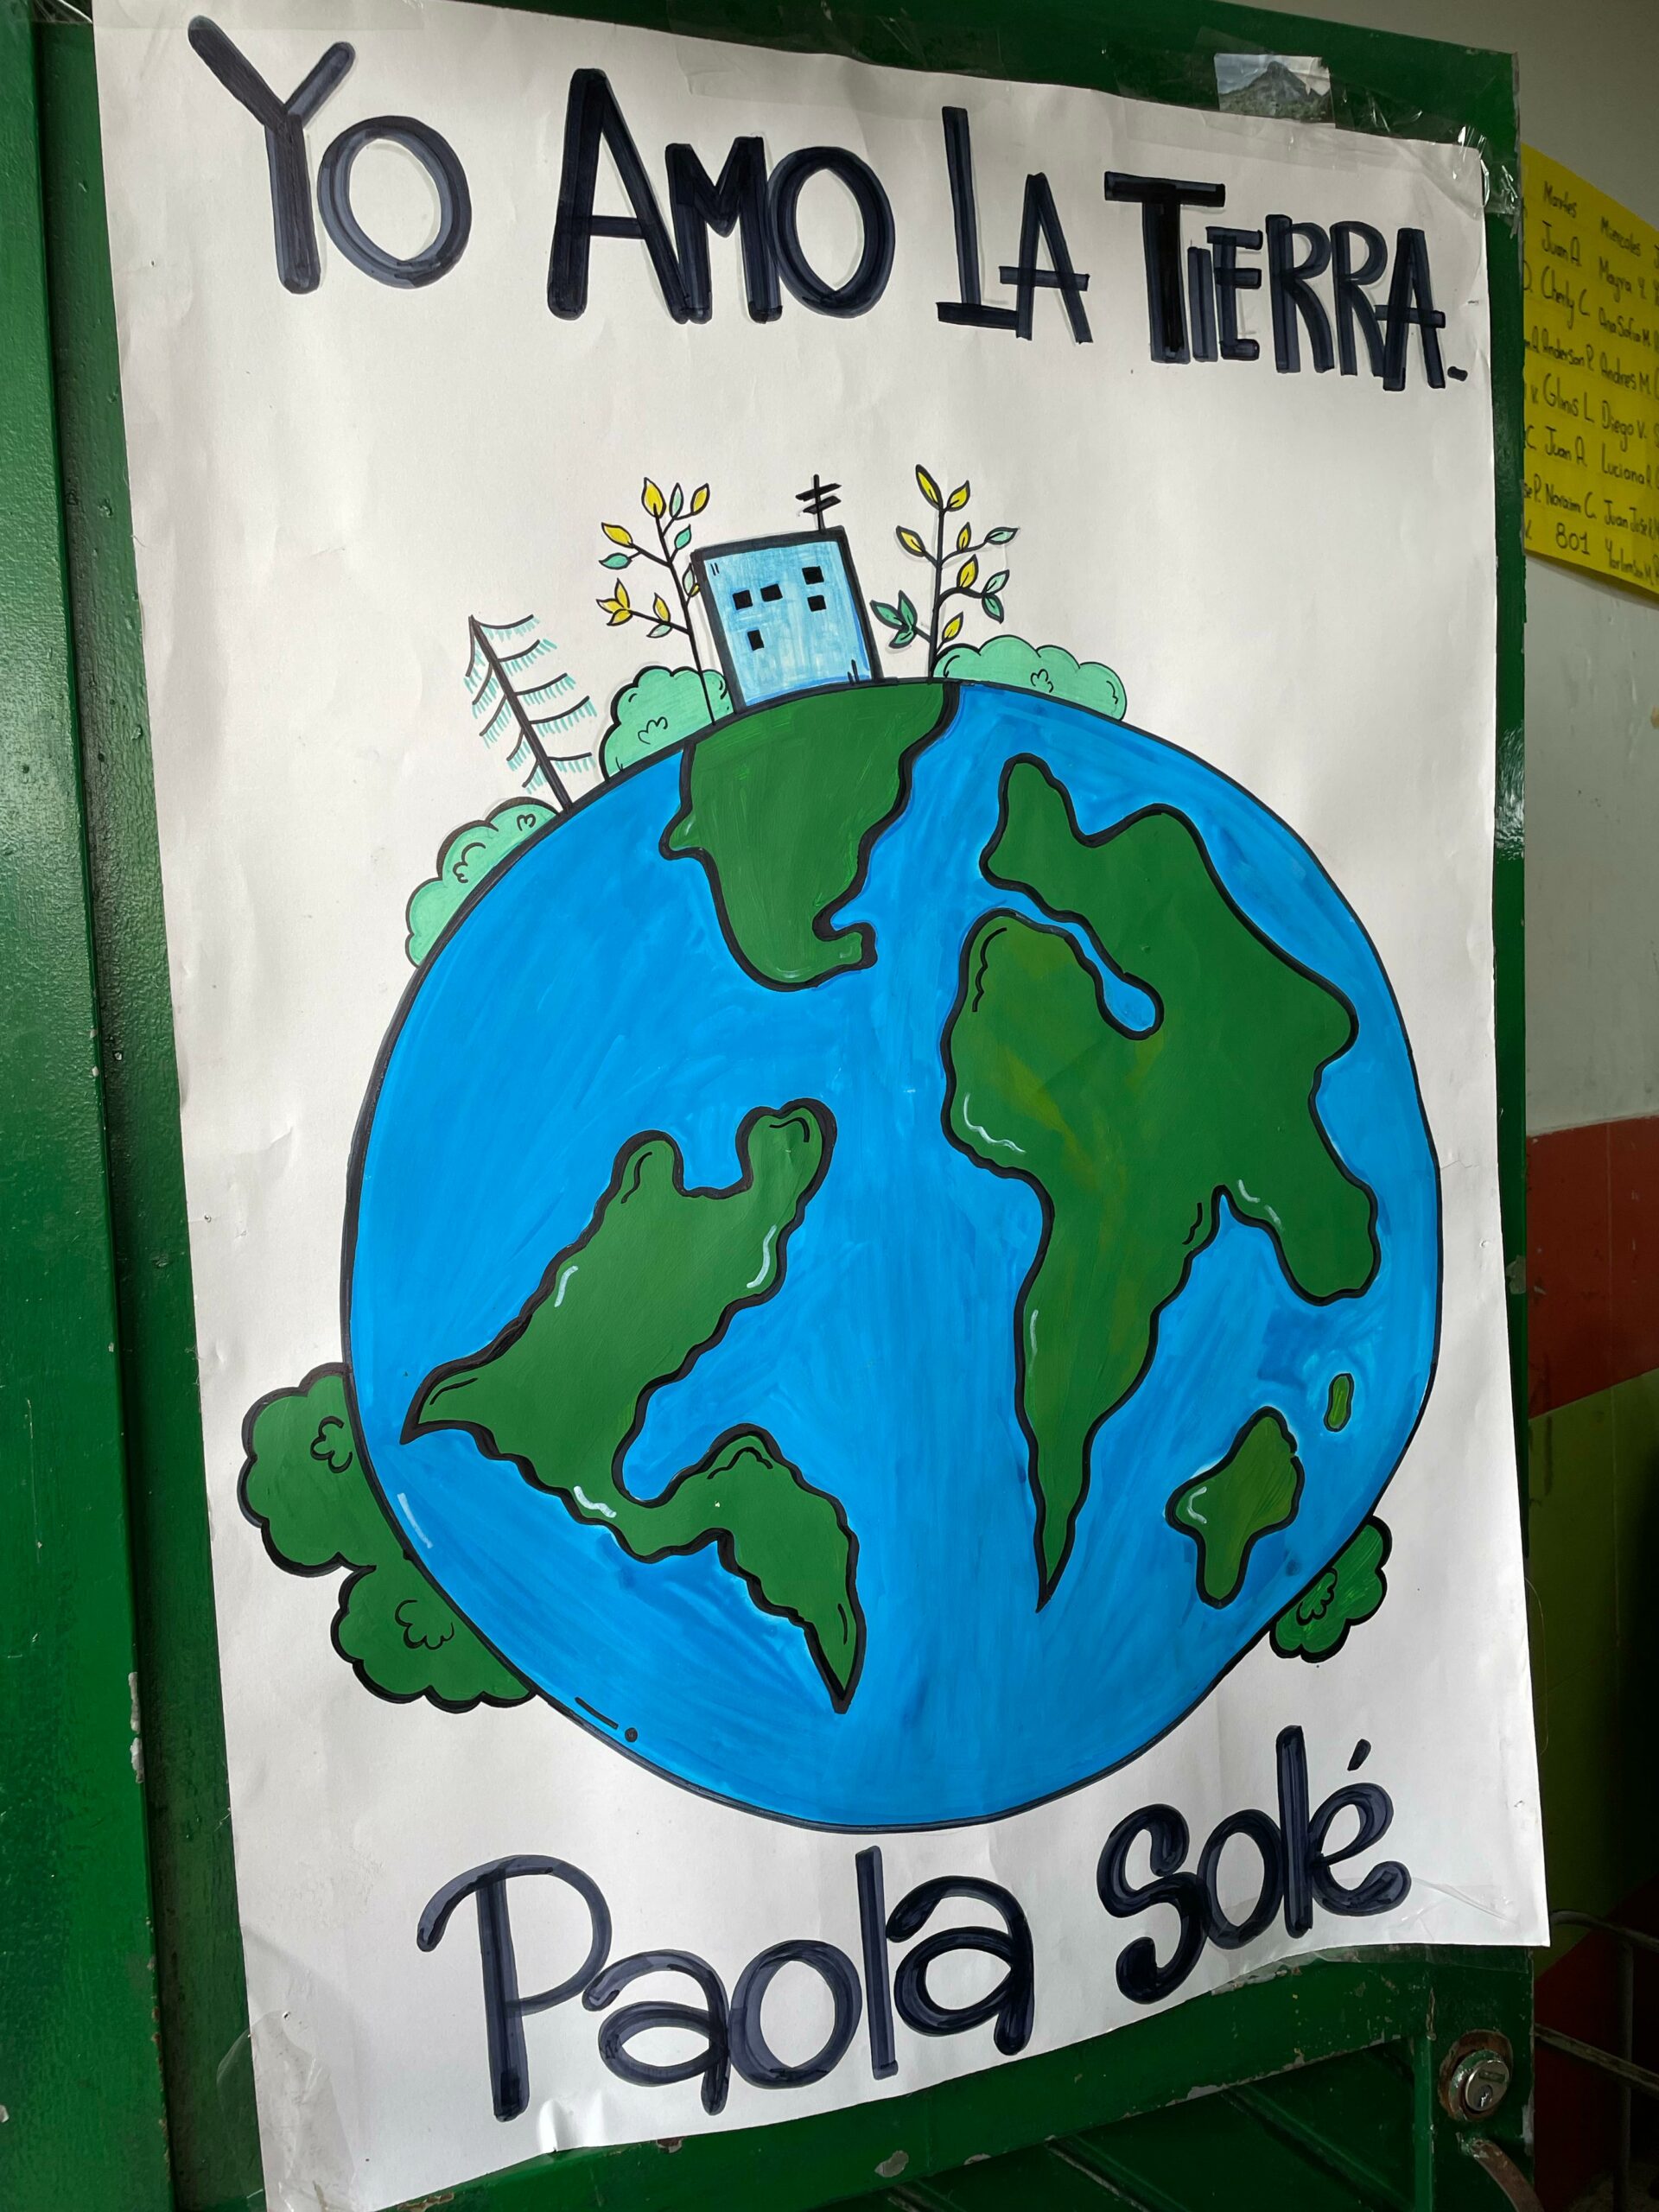 YO AMO LA TIERRA.
Paola Solé
Martes Miercoles
Juan A. Mayra Y.
Cherly C. Ana Sofia M.
Anderson P. Andres M.
V. Glinis L. Diego V.
C. Juan A. Luciana
P. C. Juan Jose
V. 801